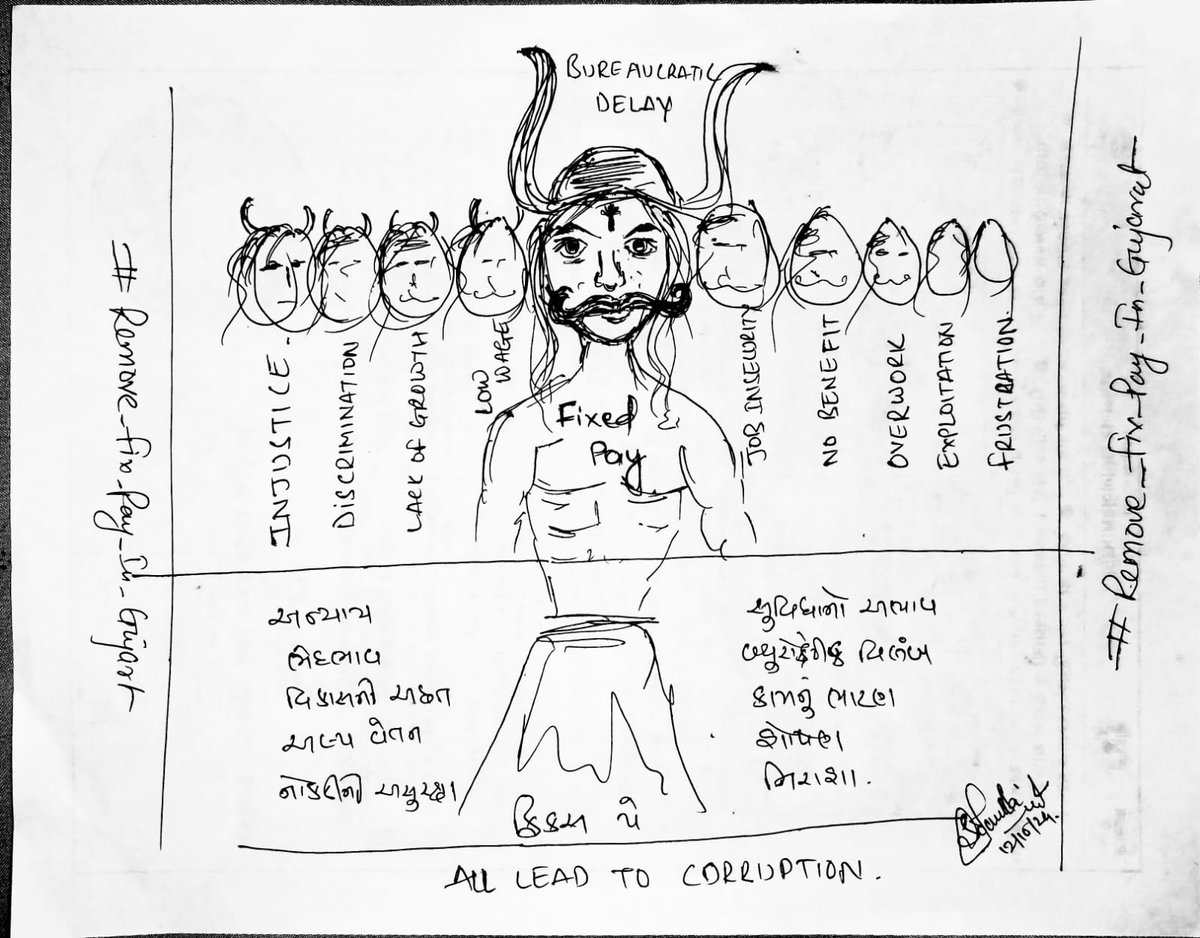 BUREAUCRATIC
DELAY
INJUSTICE.
DISCRIMINATION
LACK OF GROWTH
LOW
WAGE
Fixed
Pay
JOB INSECURITY
NO BENEFIT
OVERWORK
EXPLOITATION
FRUSTRATION
# Remove_fix_Pay_In_Gujarat
# Remove_Fix_Pay_In_Gujarat
અન્યાય
ભેદભાવ
વિકાસની અછત
અલ્પ વેતન
નોકરીની અસુરક્ષા
સુવિધાનો અભાવ
બ્યુરોક્રેટીક વિલંબ
કામનું ભારણ
શોષણ
નિરાશા.
ફિક્સ પે
12/10/24.
ALL LEAD TO CORRUPTION.